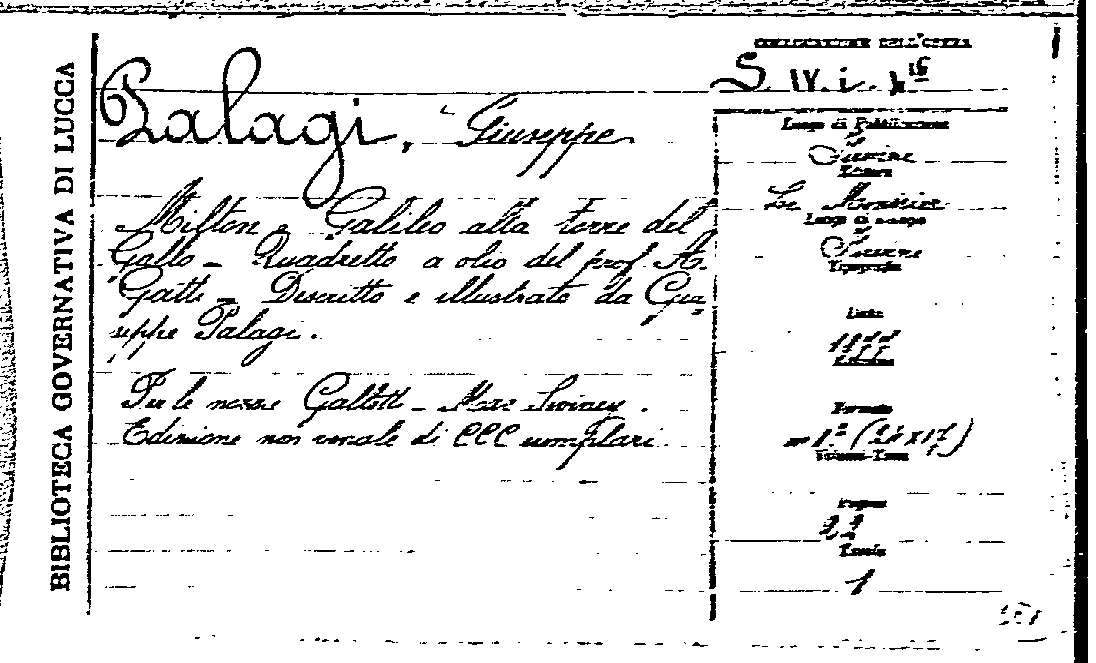 BIBLIOTECA GOVERNATIVA DI LUCCA
Palagi, Giuseppe
Milton e Galileo alla torre del
Gallo - Quadretto a olio del prof. A.
Gatti - Descritto e illustrato da Giu=
seppe Palagi.
Per le nozze Galletti - Mac Swiney.
Edizione non venale di CCC esemplari
COLLOCAZIONE DELL'OPERA
S. IV. i.
Luogo di Pubblicazione
Firenze
Editore
Le Monnier
Luogo di stampa
Firenze
Tipografia
Data
1877
Formato
(24 x 17)
Volumi-Tomi
Pagine
22
Tavole
1